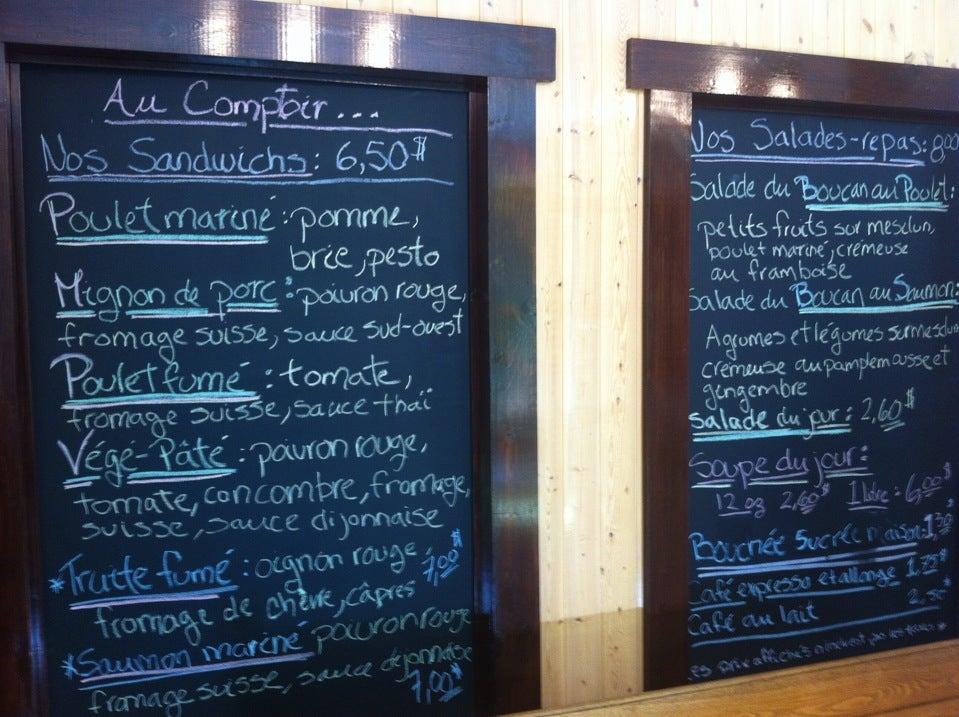 Au Comptoir...
Nos Sandwichs: 6,50$
Poulet mariné: pomme,
brie, pesto
Mignon de porc: poivron rouge,
fromage suisse, sauce sud-ouest
Poulet fumé: tomate,
fromage suisse, sauce thaï
Végé-Pâté: poivron rouge,
tomate, concombre, fromage,
suisse, sauce dijonnaise
*Truite fumé: oignon rouge, 7,00$
fromage de chèvre, câpres
*Saumon mariné poivron rouge
fromage suisse, sauce dijonnaise
7,00$
Nos Salades-repas: 8,00
Salade du Boucan au Poulet:
petits fruits sur mesclun,
poulet mariné, crémeuse
au framboise
Salade du Boucan au Saumon:
Agrumes et légumes sur mesclun
crémeuse au pamplemousse et
gingembre
Salade du jour: 2,60$
Soupe du jour:
12 oz 2,60$ 1 litre: 6,00$
Bouchée sucrée maison: 1,50$
Café expresso et allongé 1,75$
Café au lait 2,50